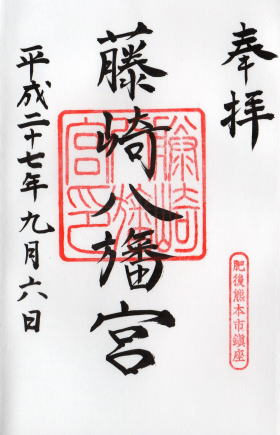 奉拝
肥後熊本市鎮座
藤崎八旛宮
平成二十七年九月六日